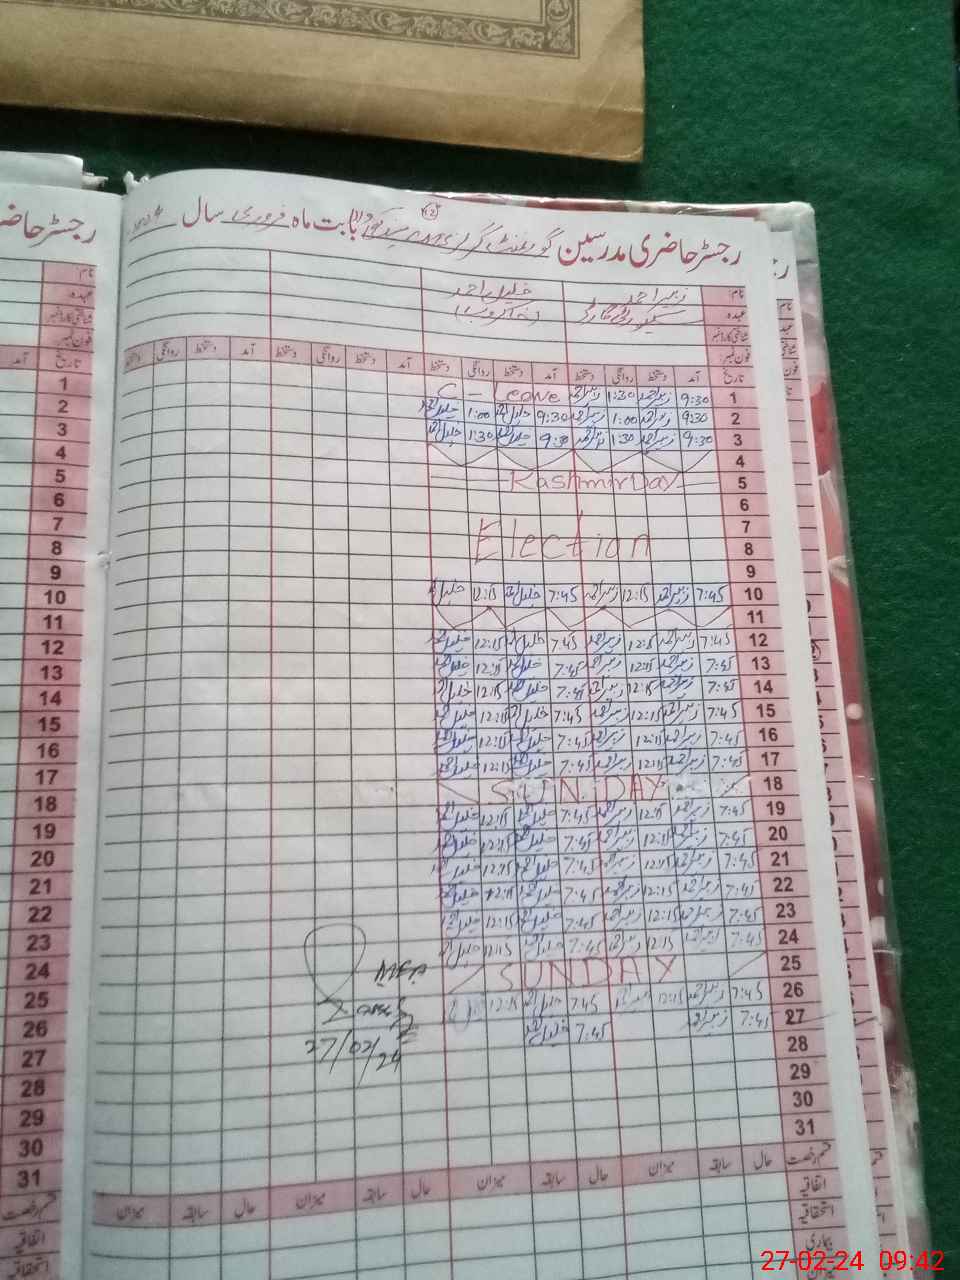 رجسٹر حاضری مدرسین گورنمنٹ گرلز بابت ماہ فروری سال 2024
نام: زبیر احمد خلیل احمد
عہدہ سیکورٹی گارڈ (خاکروب)
شناختی کارڈ نمبر
فون نمبر:
تاریخ آمد دستخط روانگی دستخط آمد دستخط روانگی دستخط آمد دستخط روانگی دستخط آمد دستخط روانگی دستخط
1 9:30 زبیر احمد 1:30 زبیر احمد Leave
2 9:30 زبیر احمد 1:00 زبیر احمد 9:30 خلیل احمد 1:00 خلیل احمد
3 9:30 زبیر احمد 1:30 زبیر احمد 9:30 خلیل احمد 1:30 خلیل احمد
4
5 Kashmir Day
6
7 Election
8
9
10 7:45 زبیر احمد 12:15 زبیر احمد 7:45 خلیل احمد 12:15 خلیل احمد
11
12 7:45 زبیر احمد 12:15 زبیر احمد 7:45 خلیل احمد 12:15 خلیل احمد
13 7:45 زبیر احمد 12:15 زبیر احمد 7:45 خلیل احمد 12:15 خلیل احمد
14 7:45 زبیر احمد 12:15 زبیر احمد 7:45 خلیل احمد 12:15 خلیل احمد
15 7:45 زبیر احمد 12:15 زبیر احمد 7:45 خلیل احمد 12:15 خلیل احمد
16 7:45 زبیر احمد 12:15 زبیر احمد 7:45 خلیل احمد 12:15 خلیل احمد
17 7:45 زبیر احمد 12:15 زبیر احمد 7:45 خلیل احمد 12:15 خلیل احمد
18 SUNDAY
19 7:45 زبیر احمد 12:15 زبیر احمد 7:45 خلیل احمد 12:15 خلیل احمد
20 7:45 زبیر احمد 12:15 زبیر احمد 7:45 خلیل احمد 12:15 خلیل احمد
21 7:45 زبیر احمد 12:15 زبیر احمد 7:45 خلیل احمد 12:15 خلیل احمد
22 7:45 زبیر احمد 12:15 زبیر احمد 7:45 خلیل احمد 12:15 خلیل احمد
23 7:45 زبیر احمد 12:15 زبیر احمد 7:45 خلیل احمد 12:15 خلیل احمد
24 7:45 زبیر احمد 12:15 زبیر احمد 7:45 خلیل احمد 12:15 خلیل احمد
25 SUNDAY
26 7:45 زبیر احمد 12:15 زبیر احمد 7:45 خلیل احمد 12:15
27 7:45 زبیر احمد 7:45 خلیل احمد
MEA
27/02/24
28
29
30
31
قسم رخصت حال سابقہ میزان حال سابقہ میزان حال سابقہ میزان حال سابقہ میزان
اتفاقیہ
استحقاقیہ
بیماری
میزان
رجسٹر حاضری
نام:
عہدہ
شناختی کارڈ نمبر
فون نمبر:
تاریخ
1
2
3
4
5
6
7
8
9
10
11
12
13
14
15
16
17
18
19
20
21
22
23
24
25
26
27
28
29
30
31
قسم رخصت
اتفاقیہ
استحقاقیہ
27-02-24 09:42